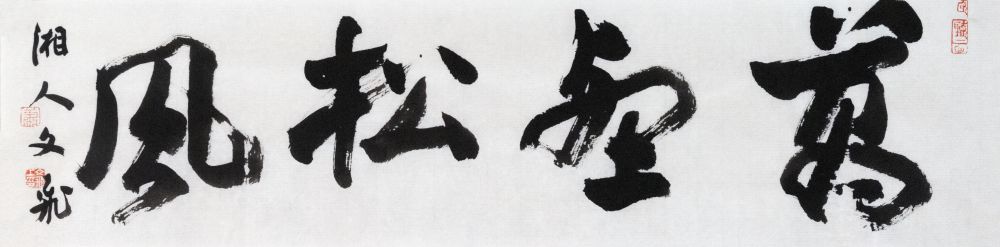 萬壑松風
湘人文飛